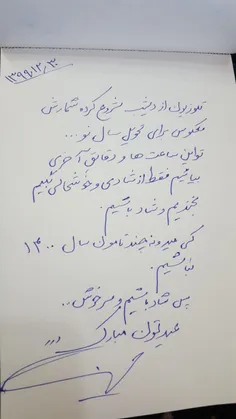 ۱۳۹۹,۱۲,۳۰
تلوزیون از دیشب شروع کرده شمارش
معکوس برای تحویل سال نو...
تواین ساعت ها و دقایق آخری
بیائیم فقط از شادی و خوشحالی بگیم
بخندیم و شاد باشیم.
کی میدونه چند تا مون سال ۱۴۰۰
نباشیم.
پس شاد باشیم و سرخوش..
عیدتون مبارک